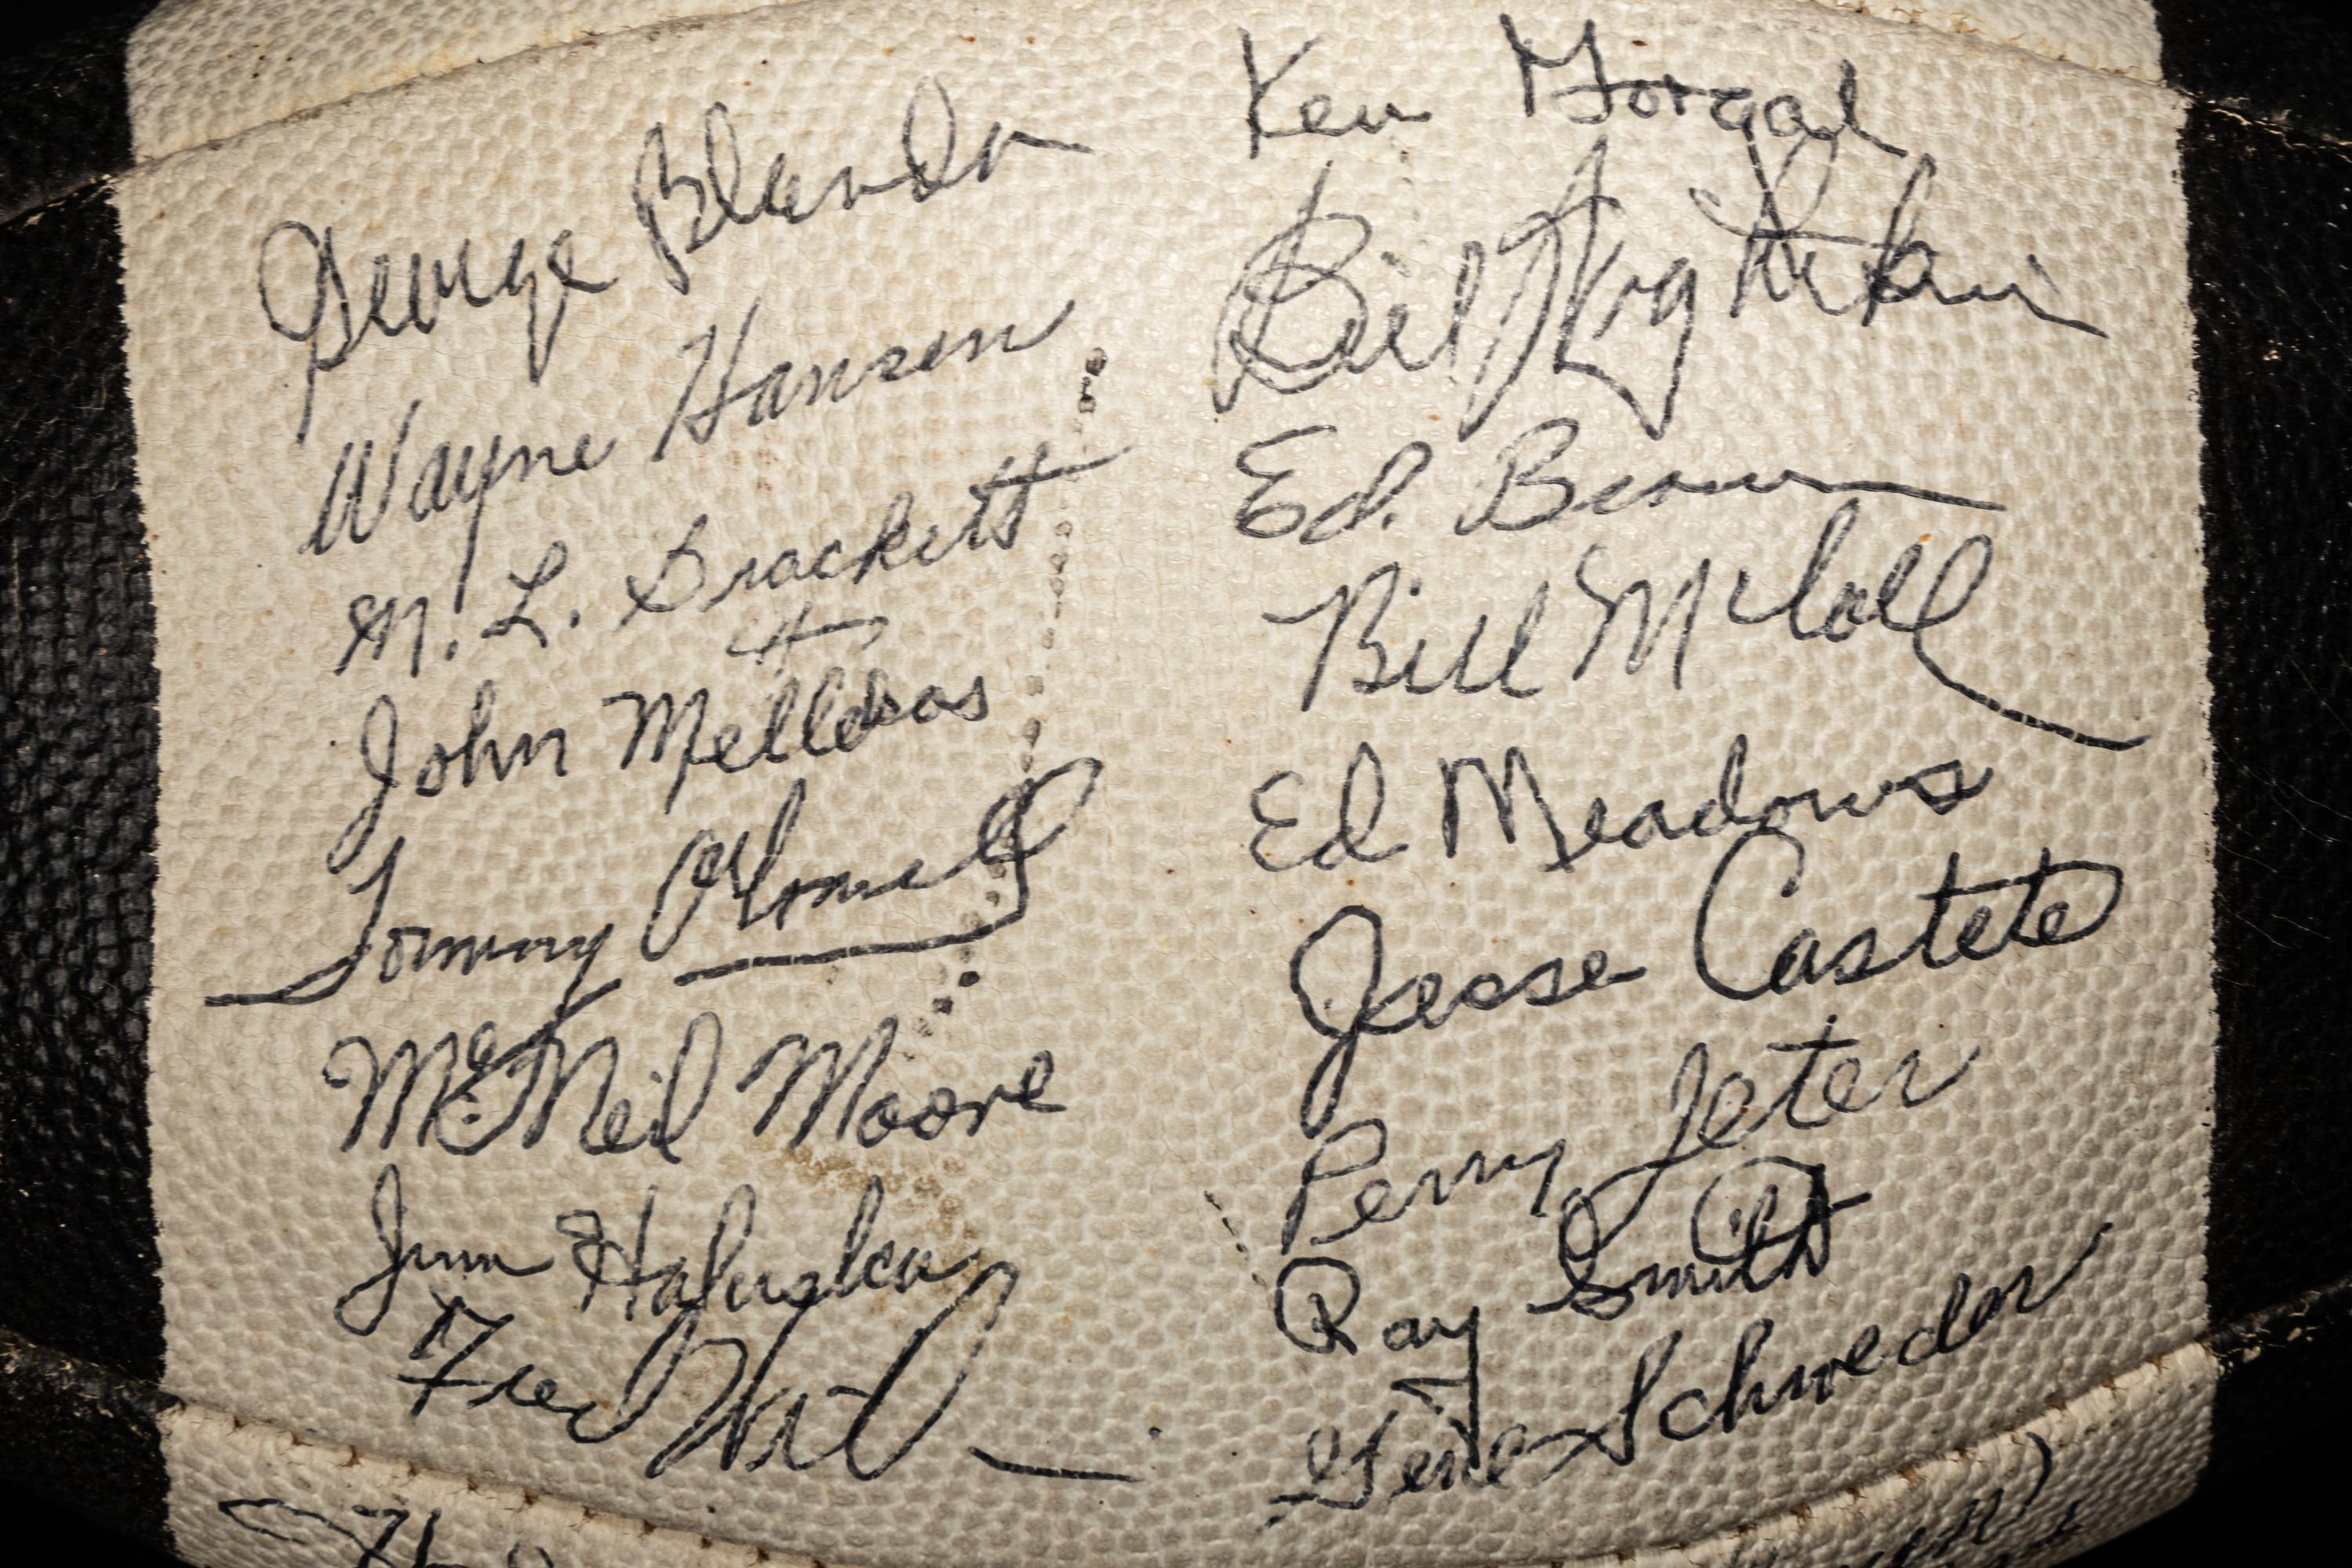 George Blanda
Wayne Hansen
M. L. Brackett
John Mellekas
Tommy
McNeil Moore
Jim Haluska
Fred
Ken Gorgal
Bill
Ed. Brown
Bill McColl
Ed Meadows
Jesse Castete
Perry Jeter
Ray Smith
Gene Schroeder